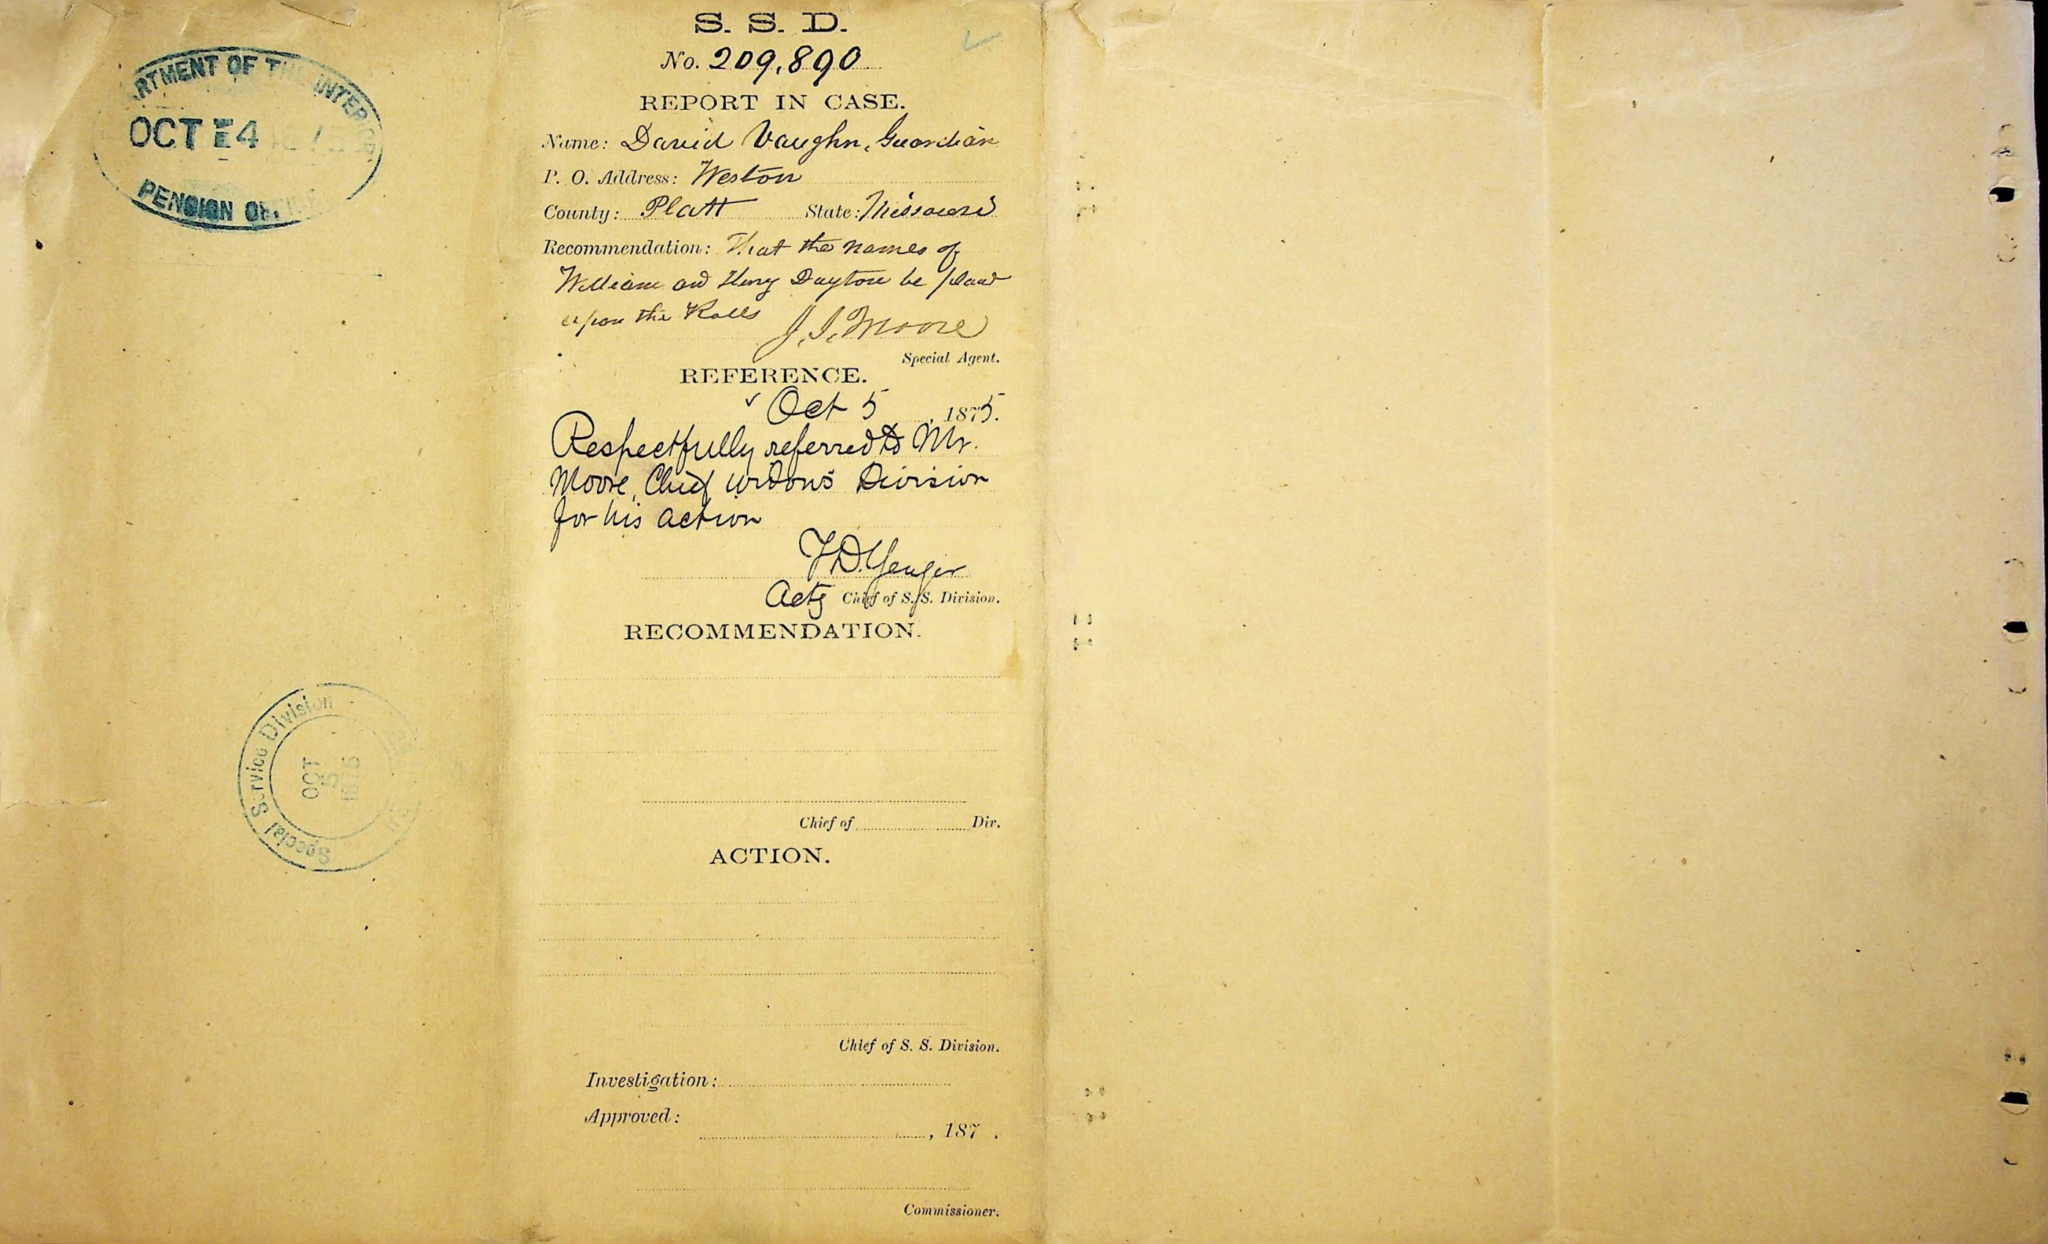 DEPARTMENT OF THE INTERIOR
OCT 4 1875
PENSION OFFICE
Special Service Division
OCT
5
1875
S. S. D.
No. 209,890
REPORT IN CASE.
Name: David Vaughn, Guardian
P. O. Address: Weston
County: Platt State: Missouri
Recommendation: That the names of
William and Henry Dayton be placed
upon the Rolls
J. J. Moore
Special Agent.
REFERENCE.
Oct 5, 1875.
Respectfully referred to Mr.
Moore, Chief Widows Division
for his action
Actg Chief of S. S. Division.
RECOMMENDATION.
Chief of Div.
ACTION.
Chief of S. S. Division.
Investigation:
Approved:
, 187 .
Commissioner.